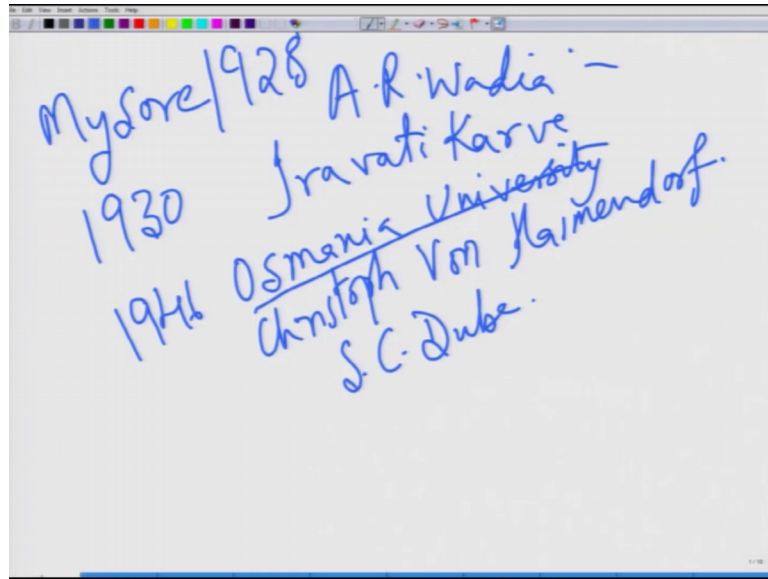 File Edit View Insert Actions Tools Help
Mysore/1928 A.R. Wadia -
1930 Iravati Karve
1946 Osmania University
Christoph Von Haimendorf.
S.C. Dube.
1/10